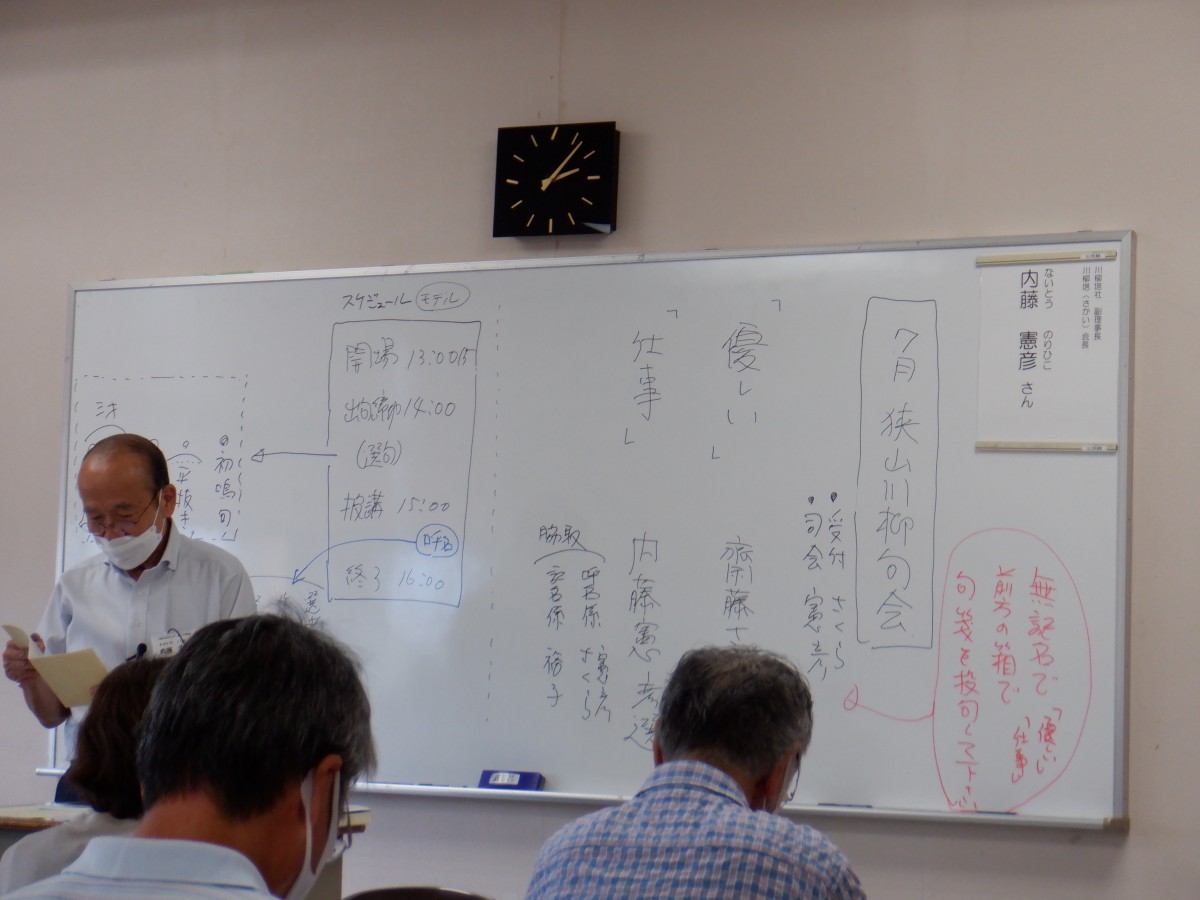 川柳塔社 副理事長
川柳塔(さかい)会長
ないとう のりひこ
内藤 憲彦 さん
7月 狭山川柳句会
・受付 さくら
・司会 憲彦
「優しい」
「仕事」
内藤憲彦選
脇取
呼名係 憲彦
さくら
記名係 裕子
無記名で「優しい」
「仕事」
前方の箱で
句箋を投句して下さい
スケジュール モデル
開場 13:00
出句締切 14:00
(選句)
披講 15:00
呼名
終了 16:00
・初鳴句
・平抜き
三才